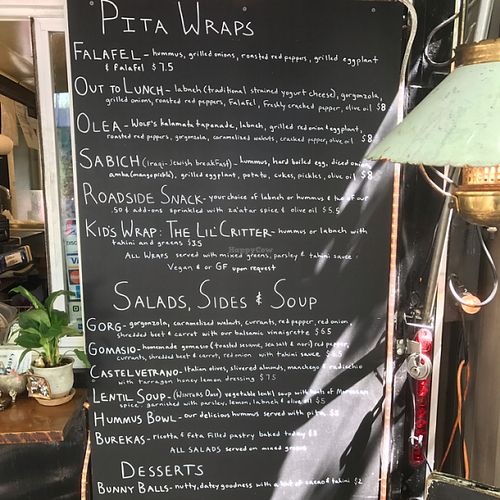 PITA WRAPS
FALAFEL - hummus, grilled onions, roasted red peppers, grilled eggplant
& Falafel $7.5
OUT TO LUNCH - labneh (traditional strained yogurt cheese), gorgonzola,
grilled onions, roasted red peppers, Falafel, Freshly cracked pepper, olive oil $8
OLEA - Wolf's kalamata tapenade, labneh, grilled red onion & eggplant,
roasted red peppers, gorgonzola, caramelized walnuts, cracked pepper, olive oil $8
SABICH (Iraqi-Jewish breakfast) - hummus, hard boiled egg, diced onion,
amba (mango pickle), grilled eggplant, potato, cukes, pickles, olive oil $8
ROADSIDE SNACK - your choice of labneh or hummus & two of our
.50¢ add-ons sprinkled with za'atar spice & olive oil $5.5
KID'S WRAP: THE LIL' CRITTER - hummus or labneh with
tahini and greens $3.5
ALL WRAPS served with mixed greens, parsley & tahini sauce
Vegan & or GF upon request
HappyCow
SALADS, SIDES & SOUP
GORG - gorgonzola, caramelized walnuts, currants, red pepper, red onion,
shredded beet & carrot with our balsamic vinaigrette $6.5
GOMASIO - homemade gomasio (toasted sesame, seasalt & nori) red pepper,
currants, shredded beet & carrot, red onion with tahini sauce $6.5
CASTELVETRANO - Italian olives, slivered almonds, manchego & radicchio
with tarragon honey lemon dressing $7.5
LENTIL SOUP - (WINTERS ONLY) vegetable lentil soup with hints of Moroccan
spice, garnished with parsley, lemon, labneh & olive oil $5
HUMMUS BOWL - our delicious hummus served with pita $8
BUREKAS - ricotta & feta filled pastry baked today $3
ALL SALADS served on mixed greens
DESSERTS
BUNNY BALLS - nutty, datey goodness with a hint of cacao & tahini $2